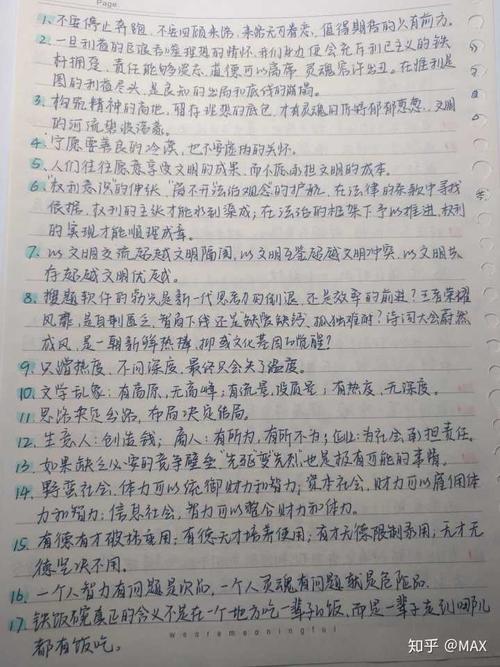 1、不要停止奔跑，不要回顾来路，来路无可眷恋，值得期待的只有前方。
2、一旦利益的
理想的情怀，我们身边便会充斥利己主义的铁
杆拥趸，责任能够
，道德可以离席，灵魂
出丑。在唯利是
图的利益尽头，是良知的出局和底线的崩塌。
3、构筑精神的高地，留存理想的底色，才有灵魂的
郁郁葱葱，文明
的河流
4、宁愿要善良的冷漠，也不要虚伪的关怀。
5、人们往往愿意享受文明的成果，而不愿承担文明的成本。
6、"权利意识"的伸张，离不开法治观念的护航，在法律的条款中寻找
依据，权利的主张才能水到渠成；在法治的框架下予以推进，权利
的实现才能顺理成章。
7、以文明交流超越文明隔阂，以文明互鉴超越文明冲突，以文明共
存超越文明优越。
8、搜题软件的勃兴是新一代思考力的倒退，还是效率的前进？王者荣耀
风靡，是自制匮乏，智商下线还是缺爱缺钙、孤独难耐？诗词大会蔚然
成风，是一朝新鲜热捧，抑或文化基因的觉醒？
9、只蹭热度，不问深度，最终只会失了温度。
10、文学乱象：有高原，无高峰；有流量，没质量；有热度，无深度。
11、思路决定出路，布局决定结局。
12、生意人：创造钱；商人：有所为，有所不为；企业：为社会承担责任。
13、如果缺乏必要的竞争壁垒，"先驱"变"先烈"也是极有可能的事情。
14、野蛮社会，体力可以统御财力和智力；资本社会，财力可以雇佣体
力和智力；信息社会，智力可以整合财力和体力。
15、有德有才破格重用；有德无才培养使用；有才无德限制录用；无才无
德坚决不用。
16、一个人智力有问题是次品，一个人灵魂有问题就是危险品。
17、铁饭碗真正的含义不是在一个地方吃一辈子的饭，而是一辈子走到哪儿
都有饭吃。
wearemeaningful
知乎 @MAX